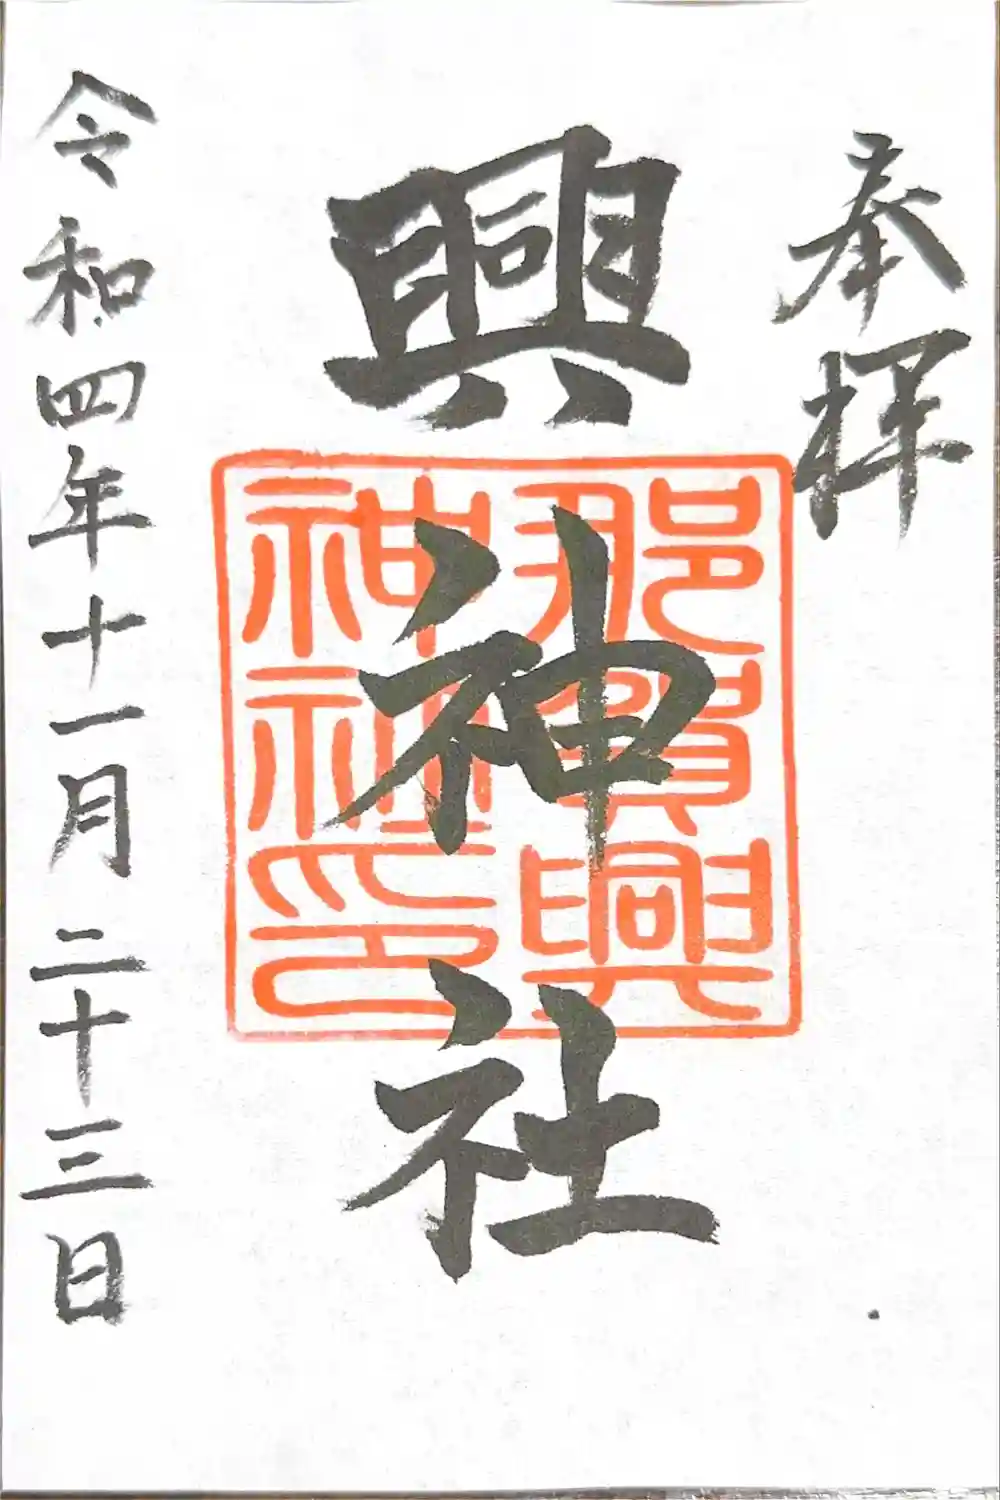 奉拝
興神社
那賀興
神社印
令和四年十一月二十三日